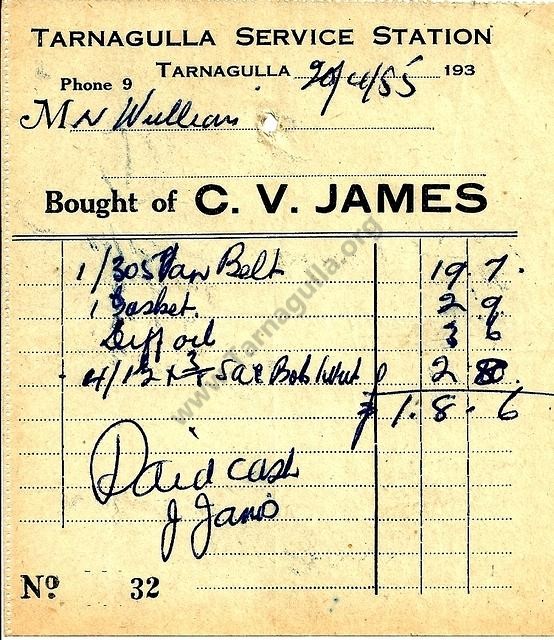 TARNAGULLA SERVICE STATION
Phone 9 TARNAGULLA 20/4/55 193
Mr William
Bought of C. V. JAMES
1/305 Fan Belt 19 7.
1 Gasket. 2 9
Diff oil 3 6
4/12 x SAE Bolts 2 8.
£ 1. 8. 6
Paid cash
J James
No. 32
www.Tarnagulla.org